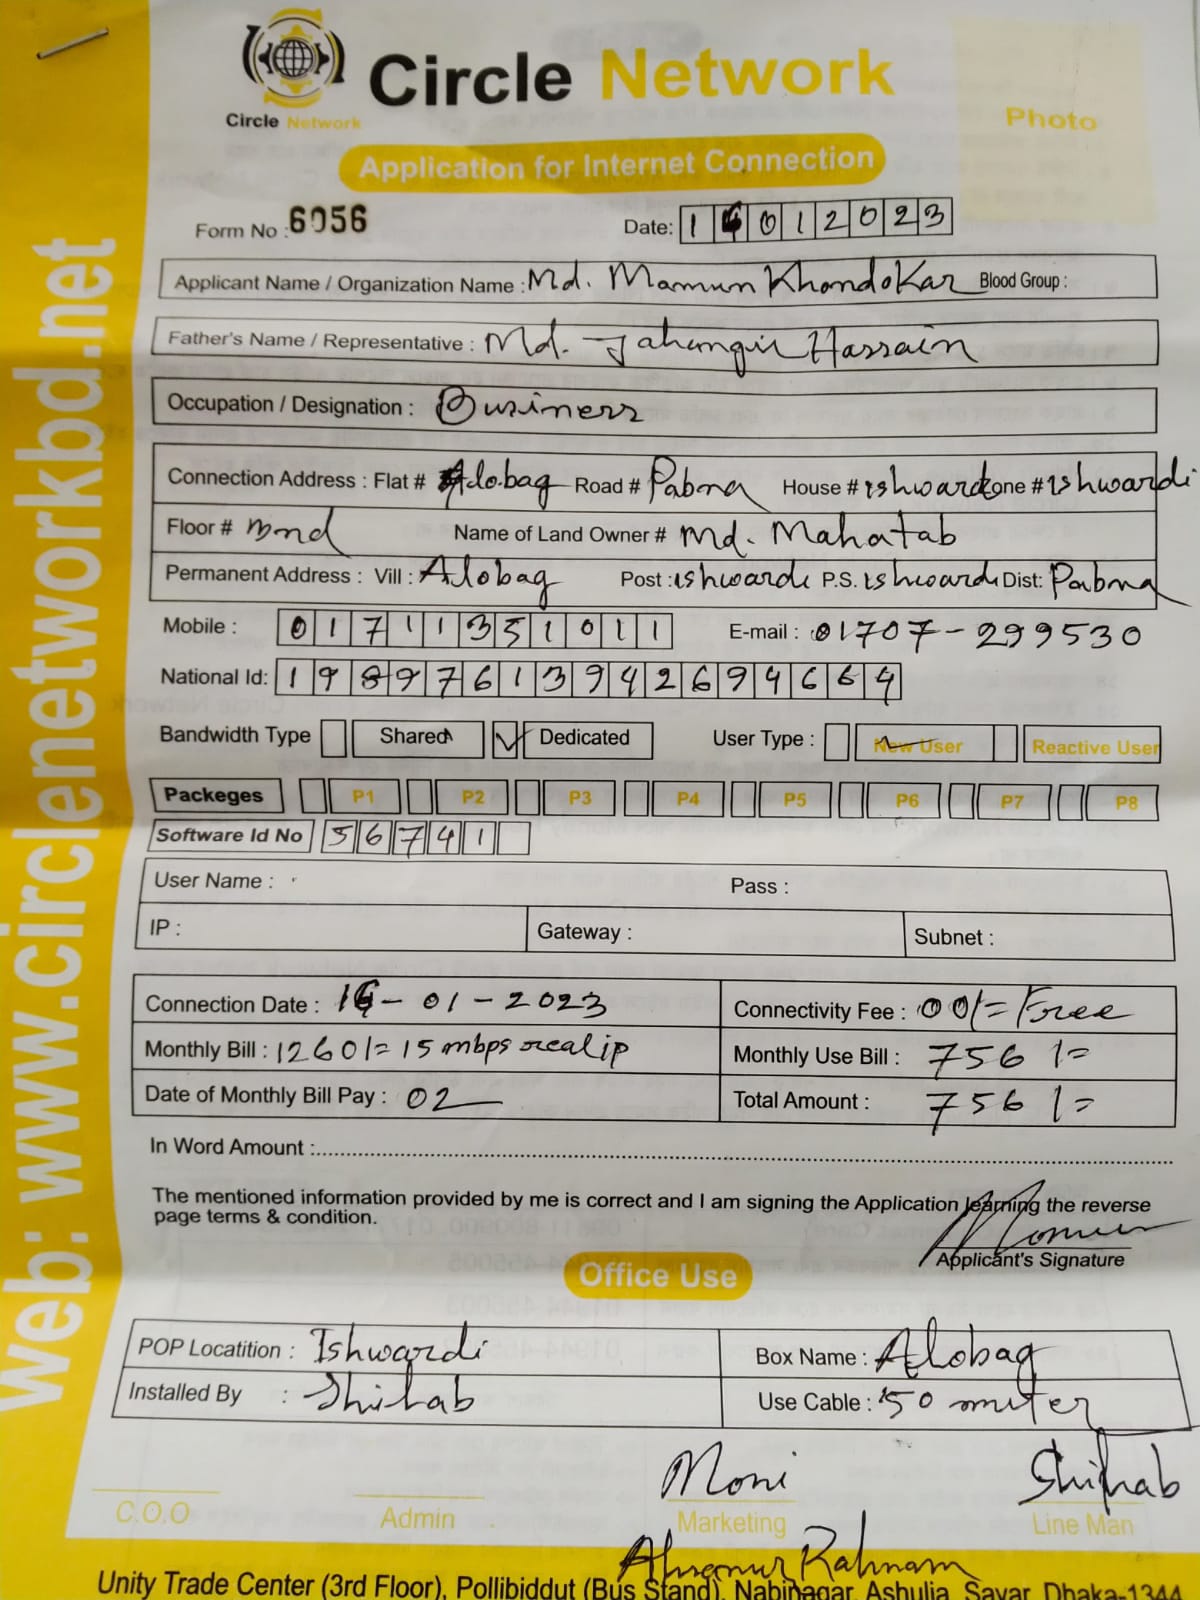 Circle Network
Circle Network
Photo
Application for Internet Connection
Form No : 6056
Date: 1 6 0 1 2 0 2 3
Applicant Name / Organization Name : Md. Mamun Khondokar Blood Group :
Father's Name / Representative : Md. Jahangir Hassain
Occupation / Designation : Business
Connection Address : Flat # Alobag Road # Pabna House # ishwardi Zone # ishwardi
Floor # Name of Land Owner # Md. Mahatab
Permanent Address : Vill : Alobag Post : ishwardi P.S. ishwardi Dist: Pabna
Mobile : 0 1 7 1 1 3 5 1 0 1 1 E-mail : 01707-299530
National Id: 1 9 8 9 7 6 1 3 9 4 2 6 9 4 6 6 4
Bandwidth Type Shared Dedicated User Type : New User Reactive User
Packeges P1 P2 P3 P4 P5 P6 P7 P8
Software Id No 5 6 7 4 1
User Name : Pass :
IP : Gateway : Subnet :
Connection Date : 16-01-2023 Connectivity Fee : 00/= Free
Monthly Bill : 1260/= 15 mbps real ip Monthly Use Bill : 756 /=
Date of Monthly Bill Pay : 02 Total Amount : 756 /=
In Word Amount :
The mentioned information provided by me is correct and I am signing the Application learning the reverse
page terms & condition.
Applicant's Signature
Office Use
POP Locatition : Ishwardi Box Name : Alobag
Installed By : Shihab Use Cable : 50 miter
Moni Shihab
C.O.O Admin Marketing Line Man
Unity Trade Center (3rd Floor), Pollibiddut (Bus Stand), Nabinagar, Ashulia, Savar, Dhaka-1344
web: www.circlenetworkbd.net